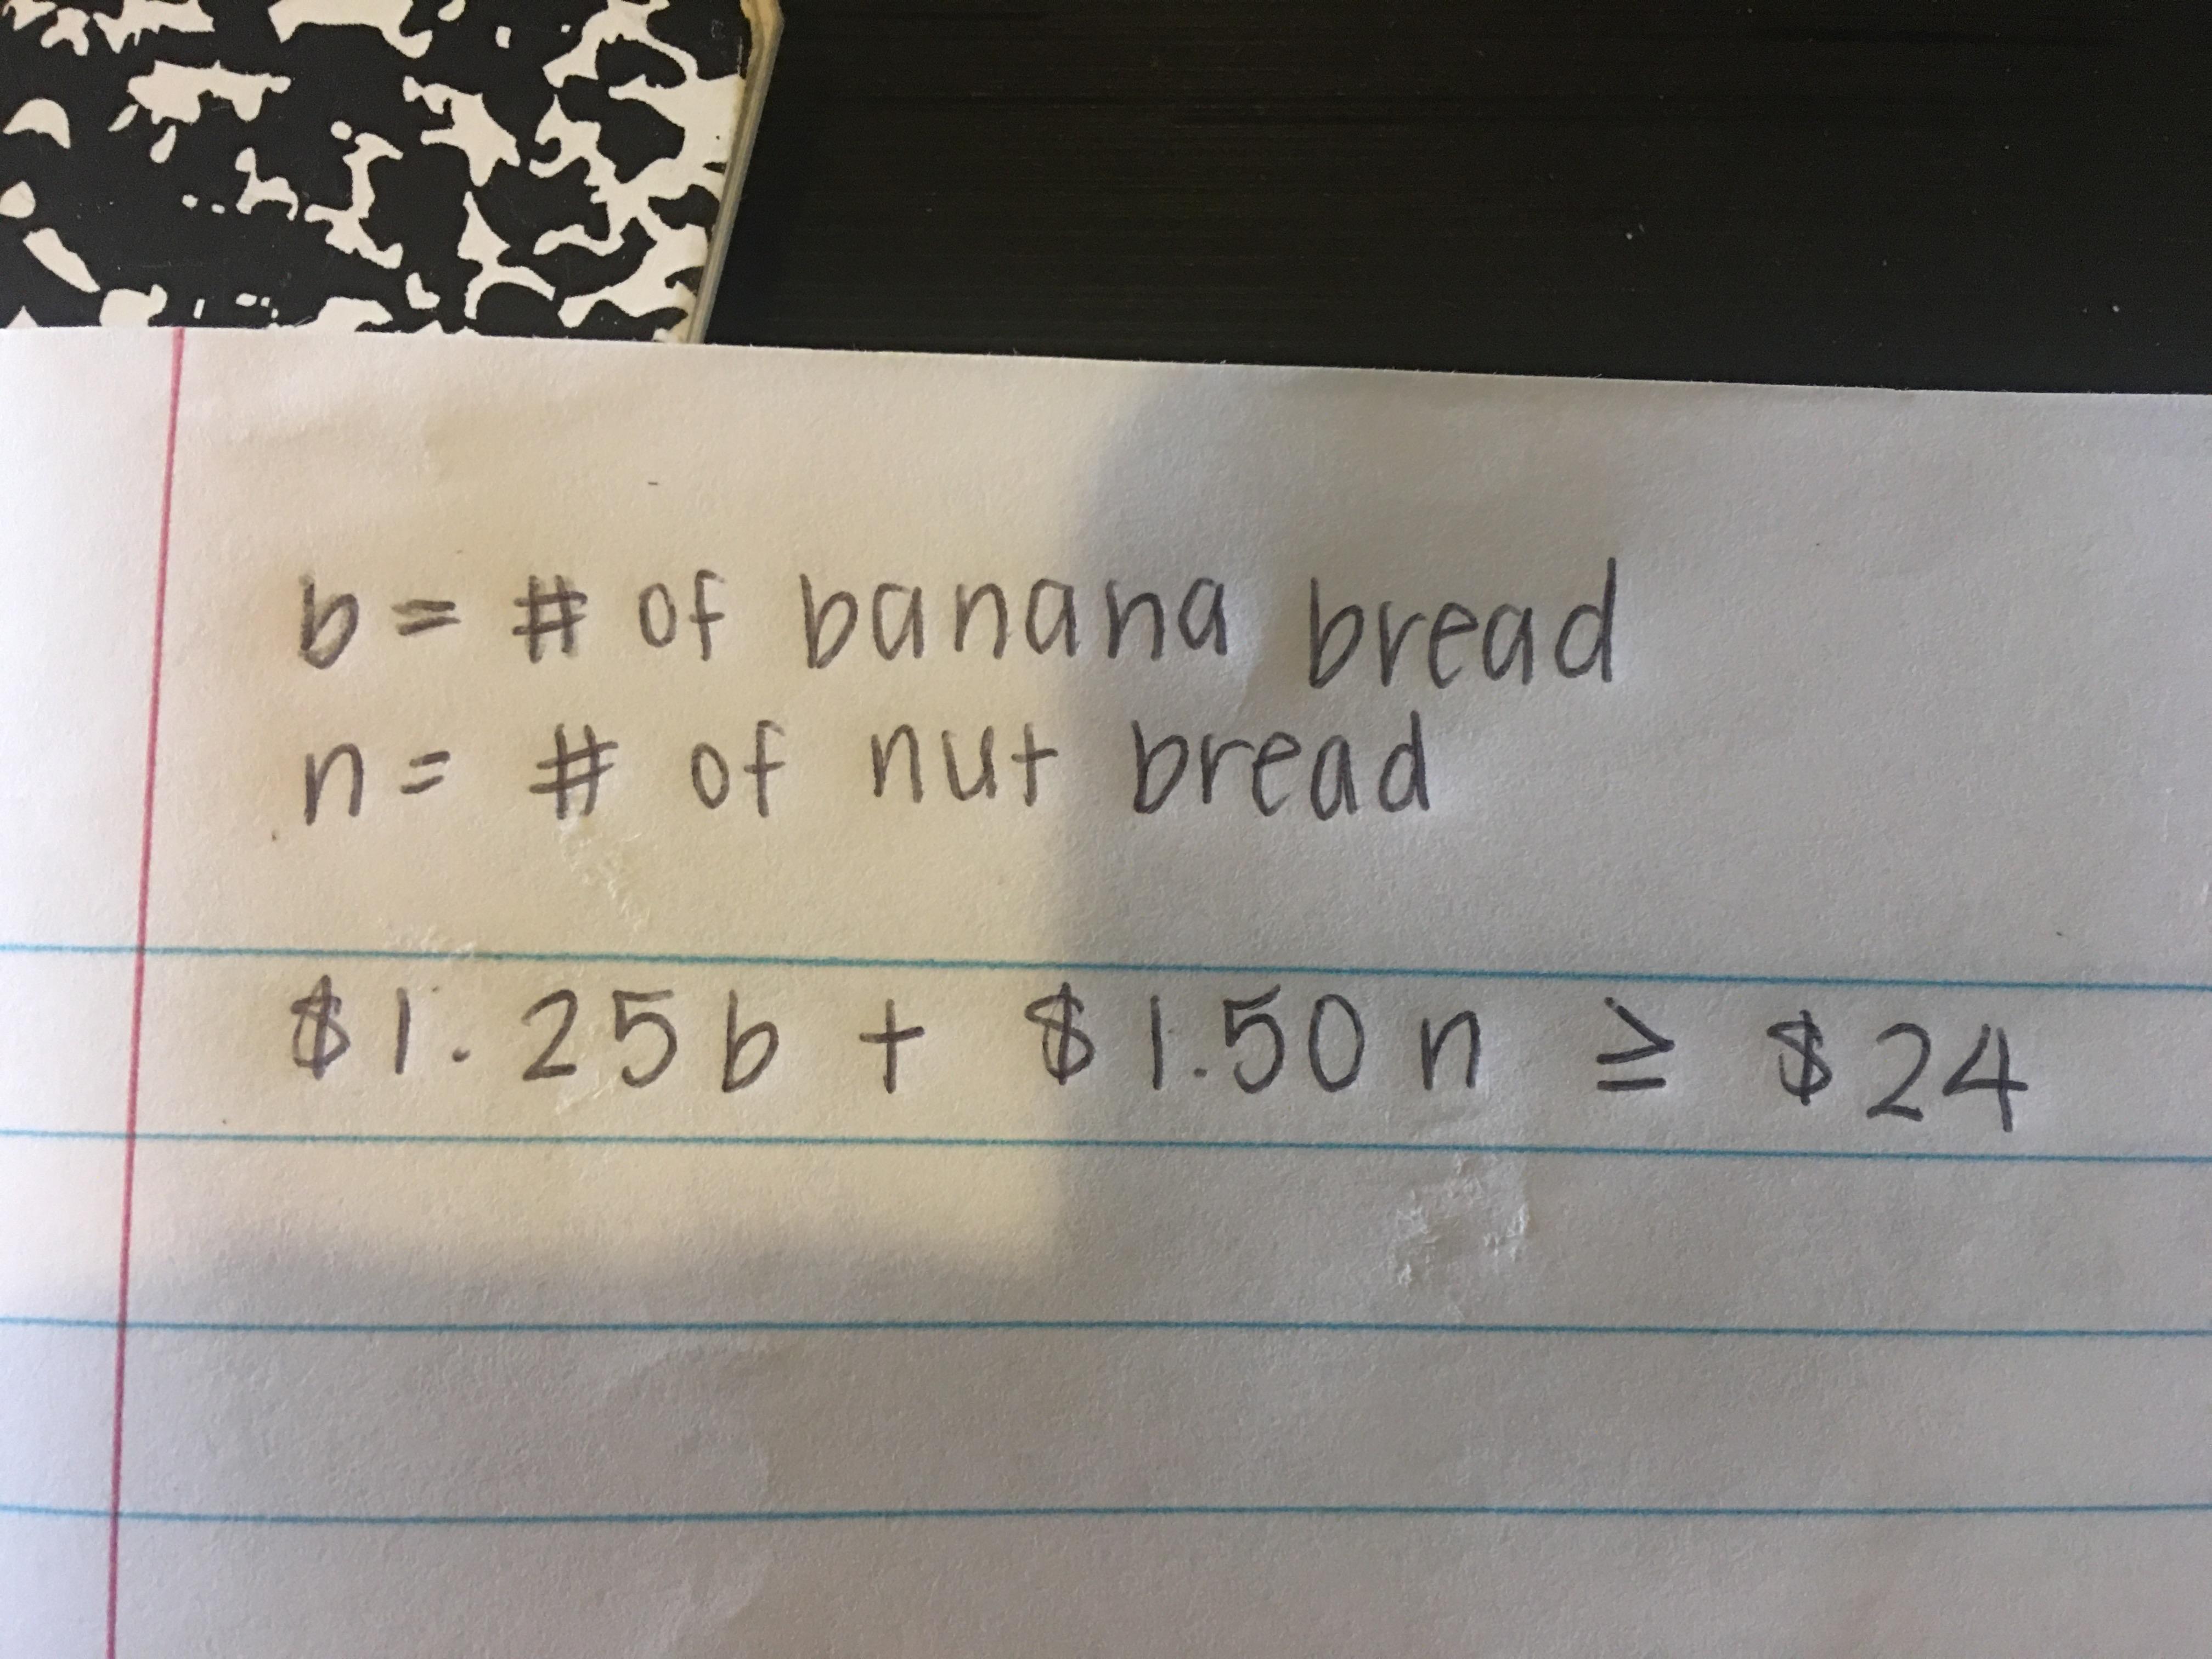 b = # of banana bread
n = # of nut bread
$1.25b + $1.50n ≥ $24